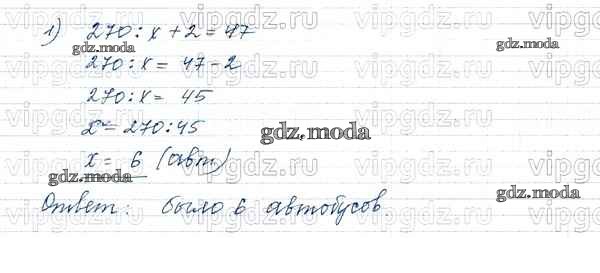 1) 270 : x + 2 = 47
270 : x = 47 - 2
270 : x = 45
x = 270 : 45
x = 6 (авт.)
Ответ: было 6 автобусов.
gdz.moda
gdz.moda
gdz.moda
gdz.moda
gdz.moda
vipgdz.ru